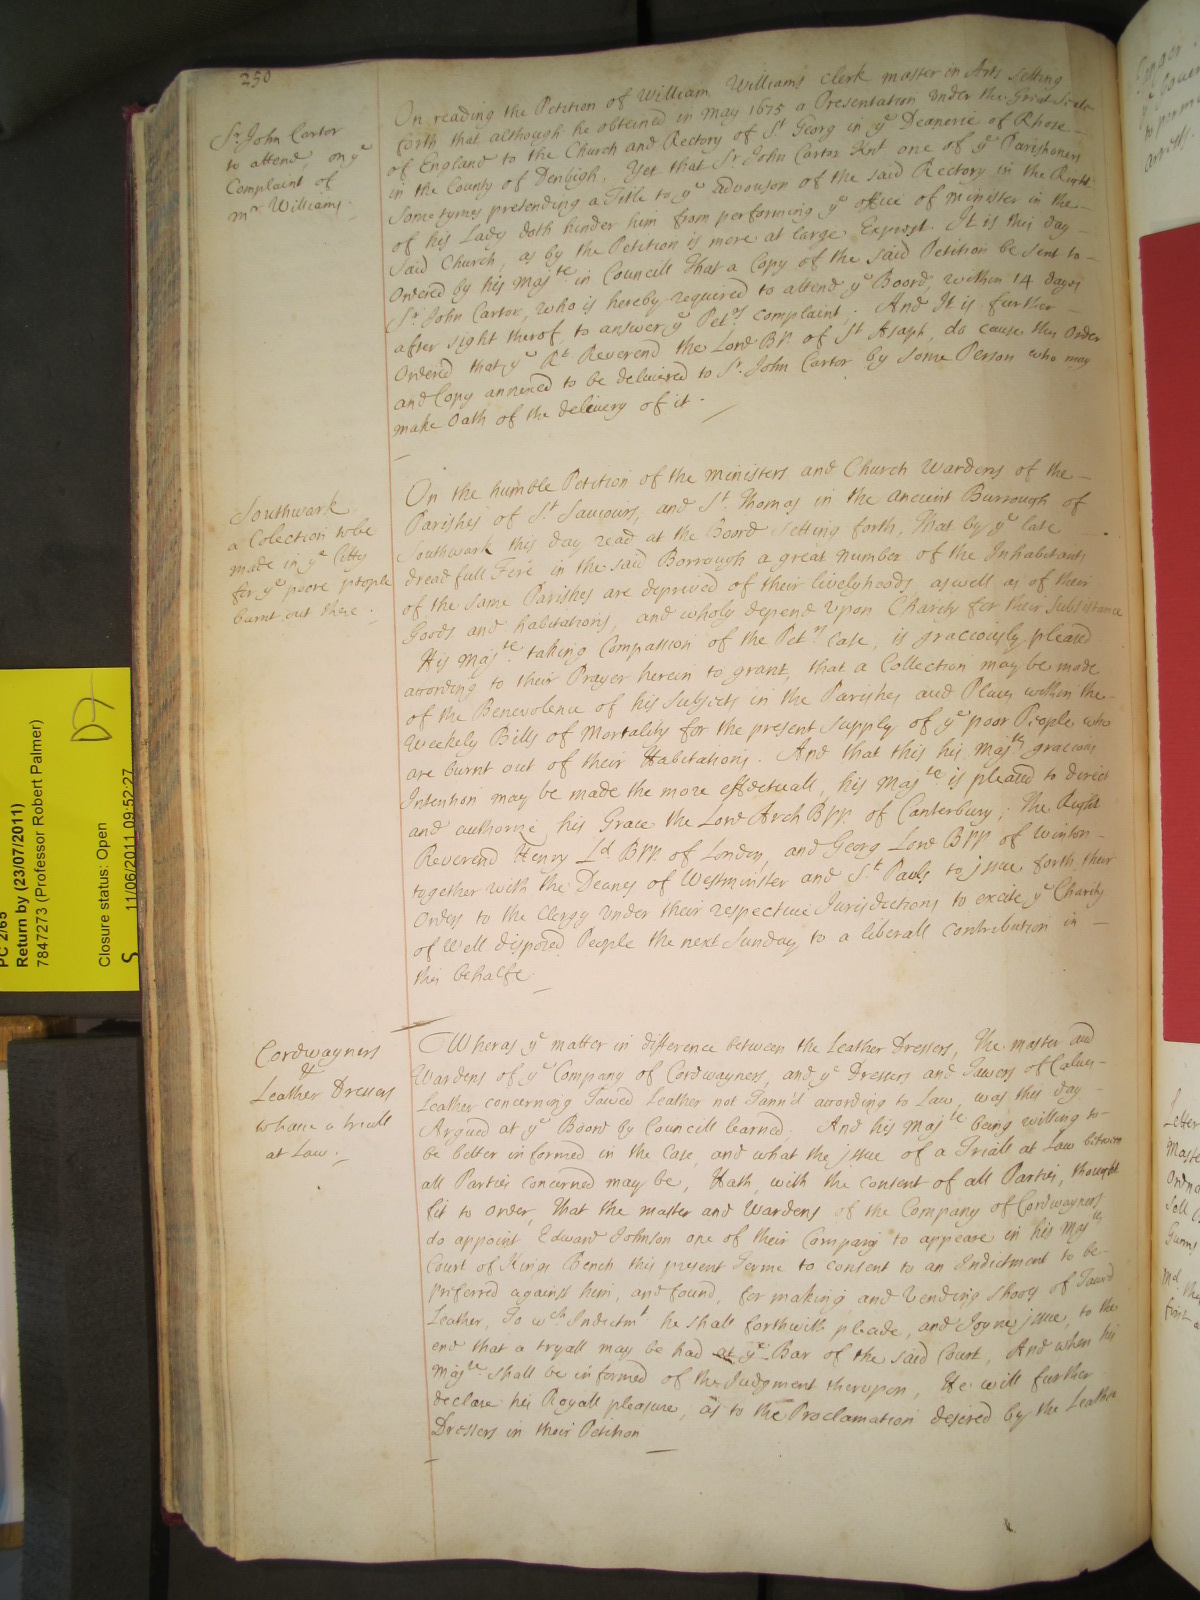 250
Sr. John Carter
to attend, on ye
Complaint of
mr. Williams.
On reading the Petition of William Williams clerk master in Arts setting
forth that although he obtained in May 1675 a Presentation under the Great Seale
of England to the Church and Rectory of St Georg in ye Deanerie of Rhose
in the County of Denbigh. Yet that Sr John Carter Knt. one of ye Parishoners
Sometymes pretending a Title to ye advouson of the said Rectory in the Right
of his Lady doth hinder him from performing ye office of minister in the
said Church, as by the Petition is more at large Exprest. It is this day
Ordered by his Majte. in Councill That a Copy of the said Petition be sent to
Sr. John Carter, who is hereby required to attend ye Board, within 14 days
after sight therof, to answer ye Petrs. complaint; And It is further
Ordered that ye Rt. Reverend the Lord Bp of St Asaph, do cause this Order
and Copy annexed to be delivered to Sr. John Carter by some Person who may
make Oath of the delivery of it.
Southwark
a Colection to be
made in ye Citty
for ye poore people
burnt out there.
On the humble Petition of the Ministers and Church Wardens of the
Parishes of St. Saviours, and St. Thomas in the ancient Burrough of
Southwark this day read at the Board setting forth, That by ye late
dreadfull Fire in the said Borrough a great number of the Inhabitants
of the same Parishes are deprived of their livelyhoods aswell as of their
Goods and habitations, and wholy depend upon Charity for their Subsistance
His Majte. taking Compassion of the Petrs case, is graciously pleased
according to their Prayer herein to grant, that a Collection may be made
of the Benevolence of his Subjects in the Parishes and Places within the
Weekely Bills of Mortality for the present supply of ye poor People who
are burnt out of their Habitations. And that this his Majts gracious
Intention may be made the more effectuall, his Majte is pleased to direct
and authorize his Grace the Lord Arch Bpp of Canterbury; The Right
Reverend Henry Ld. Bpp. of London, and Georg Lord Bpp of Winton
together with the Deanes of Westminster and St. Pauls to issue forth their
Orders to the Clergy under their respective Jurisdictions to excite ye Charity
of Well disposed People the next Sunday to a liberall contribution in
this behalfe
Cordwayners
&
Leather Dressers
to have a tryall
at Law.
Wheras ye matter in difference between the Leather Dressers, The master and
Wardens of ye Company of Cordwayners, and ye Dressers and Tawers of Calves
Leather concerning Tawed Leather not Tann'd according to Law, was this day
Argued at ye Board by Councill learned. And his Majte being willing to
be better informed in the Case, and what the issue of a Triall at Law between
all Parties concerned may be, Hath, with the consent of all Parties, thought
fit to order, That the master and Wardens of the Company of Cordwayners
do appoint Edward Johnson one of their Company to appeare in his Majts
Court of Kings Bench this present Terme to consent to an Indictment to be
preferred against him, and found, for making and Vending shooes of Tawed
Leather, To wch Indictmt he shall forthwith pleade, and Joyne issue, to the
end that a tryall may be had at ye Bar of the said Court, And when his
Majte shall be informed of the Judgment therupon, He will further
declare his Royall pleasure, as to the Proclamation desired by the Leather
Dressers in their Petition
Return by (23/07/2011)
7847273 (Professor Robert Palmer)
Closure status: Open
11/06/2011 09:52:27
S